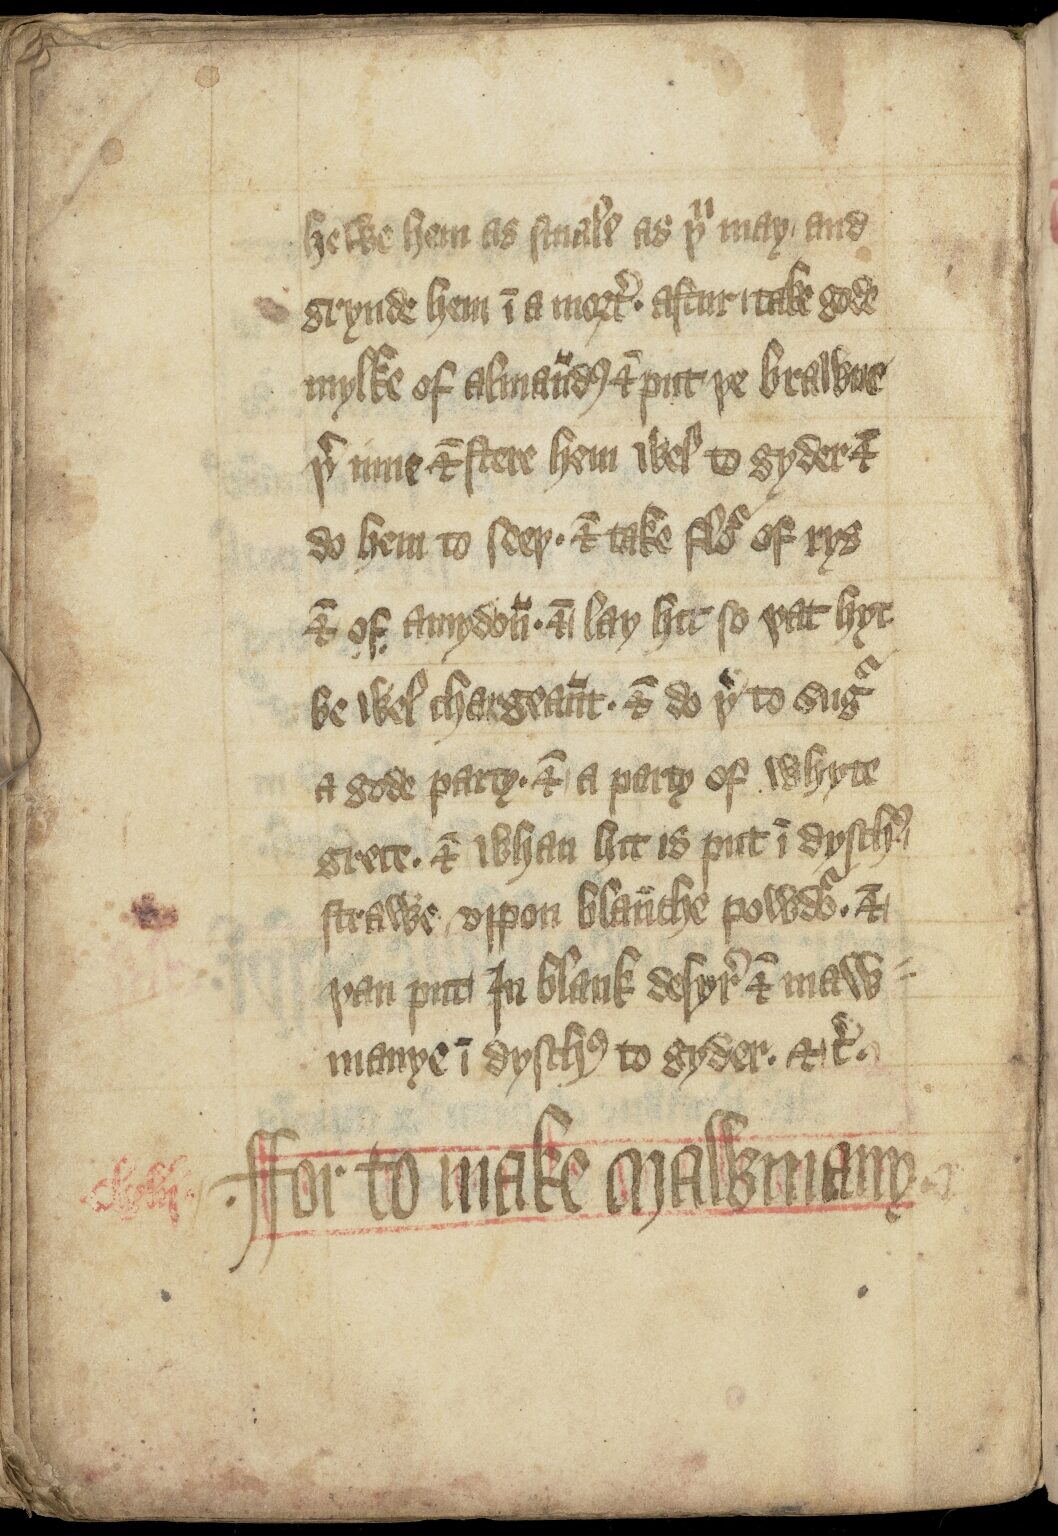 hewe hem as smale as þu may and
grynde hem ī a mort̉. aftur take gode
mylke of almaūdꝭ & put þe brawne
þ̉ inne & stere hem wel to gyder &
do hem to seeþ. & take flỏ of rys
& of amydoū. & lay hit so þat hyt
be wel chargeaūt. & do þ̉ to sug̉
a gode party. & a party of whyte
grece. & whan hit is put ī dyschꝭ
strawe vppon blaūche powd̉. &
þan put In blank desyr̉ & maw=
manye ī dyschꝭ to gyder. & c̉.
ffor to make Mawmany